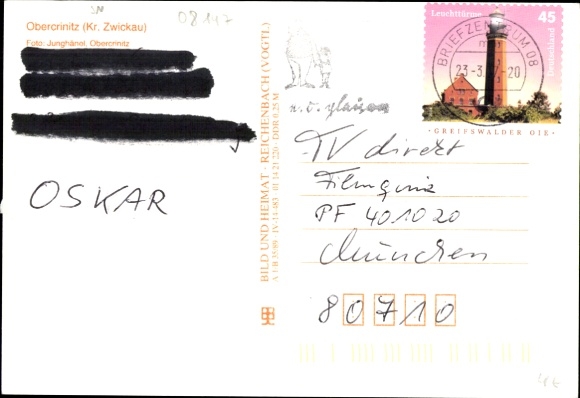 SN
08147
Obercrinitz (Kr. Zwickau)
Foto: Junghänel, Obercrinitz
OSKAR
BILD UND HEIMAT · REICHENBACH (VOGTL)
A 1/B 35/89 · IV-14-483 · 01 14 21 220 · DDR 0,25 M
Leuchttürme
45
Deutschland
GREIFSWALDER OIE
BRIEFZENTRUM 08
mb
23-3. 7-20
TV direkt
Filmquiz
PF 401020
München
80710
4€